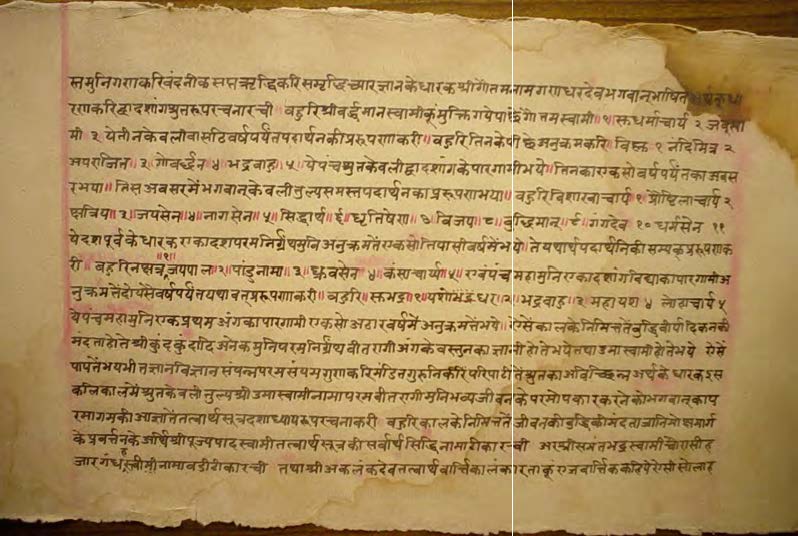 स्तमुनिगणकरिवंदनीक सप्तऋद्धिकरिसमृद्धिच्यारज्ञानकेधारक श्रीगौतमनामगणधरदेवभगवान्भाषित
रणकरिद्वादशांगश्रुतरूपरचनारची ॥ बहुरिश्रीवर्द्धमानस्वामीकूंमुक्तिगयेपाछैंगौत्तमस्वामी ॥१॥ सुधर्माचार्य २ जंबूस्वा
मी ३ येतीनकेवलीबासठिवर्षपर्यंतपदार्थनकीप्ररूपणाकरी॥ बहुरितिनकेपीछैअनुक्रमकरि विष्णु १ नंदिमित्र २
अपराजित ॥३॥ गोवर्द्धन ४ भद्रबाहु ॥५॥ येपंचश्रुतकेवलीद्वादशांगकेपारगामीभये॥ तिनकाएकसोवर्षपर्यंतकाअवस
रभया॥ तिसअवसरमेंभगवान्केवलीतुल्यसमस्तपदार्थनकाप्ररूपणाभया॥ बहुरिविशाखाचार्य १ प्रौष्टिलाचार्य २
क्षत्रिय ॥३॥ जयसेन ॥४॥ नागसेन ॥५॥ सिद्धार्थ ॥६॥ धृतिषेण ॥७॥ विजय ॥८॥ बुद्धिमान् ॥९॥ गंगदेव १० धर्मसेन ११
येदशपूर्वकेधारकएकादशपरमनिर्ग्रंथमुनिअनुक्रमतैंएकसोतियासीवर्षमेंभये॥ तेयथार्थपदार्थनिकीसम्यक्प्ररूपणाक
री॥ बहुरिनक्षत्र ॥१॥ जयपाल ॥२॥ पांडुनामा ॥३॥ ध्रुवसेन ॥४॥ कंसाचार्य ॥५॥ एवंपंचमहामुनिएकादशांगविद्याकापारगामीअ
नुक्रमतैंदोयसैवर्षपर्यंतयथावत्प्ररूपणाकरी॥ बहुरि॥ सुभद्र ॥१॥ यशोभद्र २॥ भद्रबाहु ॥३॥ महायश ४ लोहाचार्य ५
येपंचमहामुनिएकप्रथमअंगकापारगामीएकसोअठारवर्षमेंअनुक्रमतैंभये॥ ऐसैंकालकेनिमित्ततैंबुद्धिवीर्यादिकनकी
मंदताहोतैंश्रीकुंदकुंदादिअनेकमुनिपरमनिर्ग्रंथवीतरागीअंगकेवस्तुनकाज्ञानीहोतेभयेतथाउमास्वामीहोतेभये ऐसैं
पापतैंभयभीतज्ञानविज्ञानसंपन्नपरमसंयमगुणकरिमंडितगुरुनिकीपरिपाटीतैंश्रुतकाअविच्छिन्नअर्थकेधारकइस
कलिकालमेंश्रुतकेवलीतुल्यश्रीउमास्वामीनामापरमवीतरागीमुनिभव्यजीवनकेपरमोपकारकरनेकोभगवान्काप
रमागमकीआज्ञातैंतत्वार्थसूत्रदशाध्यायरूपरचनाकरी बहुरिकालकेनिमित्ततैंजीवनकीबुद्धिकीमंदताजानिमोक्षमार्ग
केप्रवर्त्तनकेअर्थिश्रीपूज्यपादस्वामीतत्वार्थसूत्रकीसर्वार्थसिद्धिनामाटीकारची अरश्रीसमंतभद्रस्वामीचौरासीह
जारगंधहस्तीनामाबडीटीकारची तथाश्रीअकलंकदेवतत्वार्थवार्त्तिकालंकारताकूंराजवार्त्तिककहियेऐसीसोलह